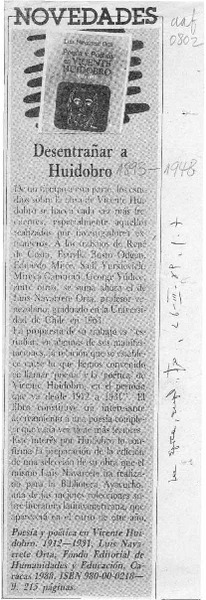 NOVEDADES
Luis Navarrete Orta
Poesía y Poética
en VICENTE
HUIDOBRO
aaf
0802
Desentrañar a
Huidobro 1893-1948
De un tiempo a esta parte, los estu-
dios sobre la obra de Vicente Hui-
dobro se hacen cada vez más fre-
cuentes, especialmente aquellos
realizados por investigadores ex-
tranjeros. A los trabajos de René
de Costa, Estrella Busto Ogden,
Eduardo Mitre, Saúl Yurkievich,
Mireya Camurati, George Yúdice,
entre otros, se suma ahora el de
Luis Navarrete Orta, profesor ve-
nezolano, graduado en la Universi-
dad de Chile en 1961.
La propuesta de su trabajo es "es-
tudiar, en algunas de sus manifes-
taciones, la relación que se estable-
ce entre lo que hemos convenido
en llamar poesía y la poética de
Vicente Huidobro, en el período
que va desde 1912 a 1931". El
libro constituye un interesante
acercamiento a una poesía comple-
ja que cada vez tiene más lectores.
Este interés por Huidobro lo con-
firma la preparación de la edición
de una selección de su obra que el
mismo Luis Navarrete ha realiza-
do para la Biblioteca Ayacucho,
una de las mejores colecciones so-
bre literatura latinoamericana, que
aparecerá en el curso de este año.
Poesía y poética en Vicente Hui-
dobro. 1912-1931. Luis Nava-
rrete Orta, Fondo Editorial de
Humanidades y Educación, Ca-
racas 1988. ISBN 980-00-0218-
9. 215 páginas.